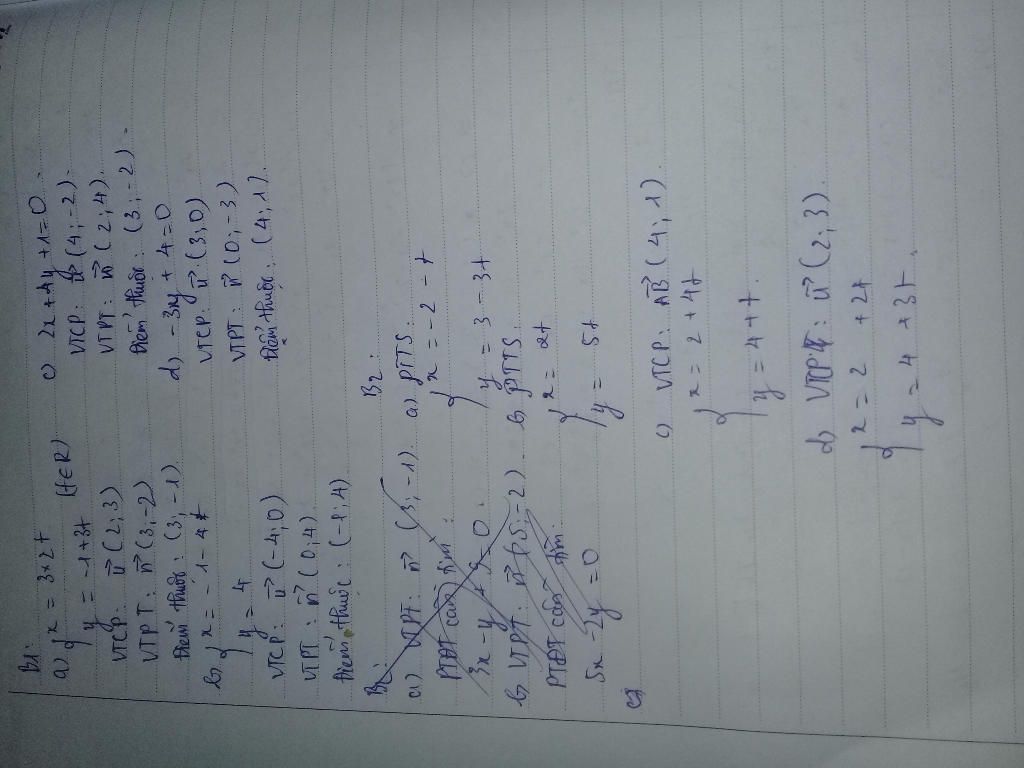 B1:
a) { x = 3 + 2t
y = -1 + 3t (t∈R)
VTCP: u→ (2; 3)
VTPT: n→ (3; -2)
Điểm thuộc: (3; -1)
b) { x = -1 - 4t
y = 4
VTCP: u→ (-4; 0)
VTPT: n→ (0; 4)
Điểm thuộc: (-1; 4)
c) 2x + 4y + 1 = 0.
VTCP: u→ (4; -2).
VTPT: n→ (2; 4).
Điểm thuộc: (3; -2).
d) -3y + 4 = 0
VTCP: u→ (3; 0)
VTPT: n→ (0; -3)
Điểm thuộc: (4; 1).
B2:
a) VTPT: n→ (3; -1).
PTĐT cần tìm:
3x - y + 9 = 0.
b) VTPT: n→ (5; -2).
PTĐT cần tìm:
5x - 2y = 0
c)
B2:
a) PTTS:
{ x = -2 - t
y = 3 - 3t
b) PTTS:
{ x = 2t
y = 5t
c) VTCP: AB→ (4; 1).
{ x = 2 + 4t
y = 4 + t.
d) VTCP: u→ (2; 3).
{ x = 2 + 2t
y = 4 + 3t.